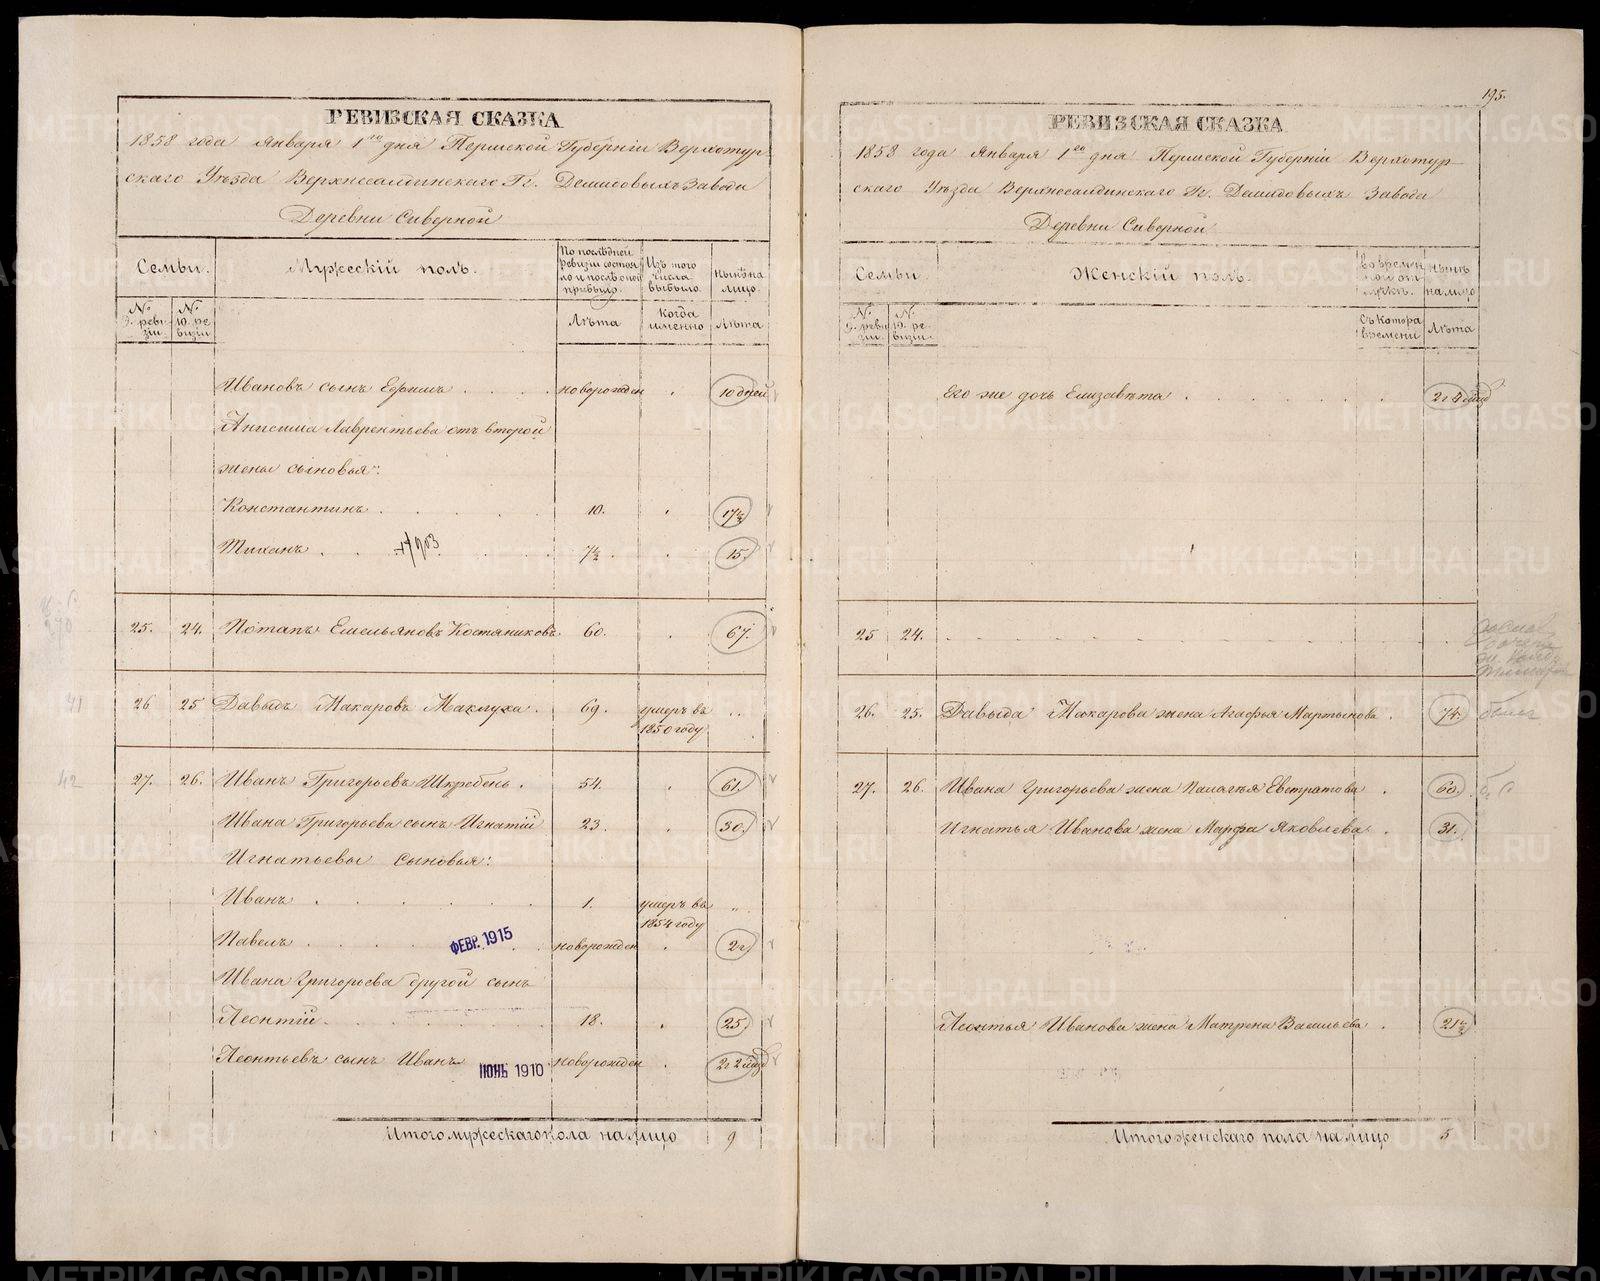 РЕВИЗСКАЯ СКАЗКА
1858 года Января 1го дня Пермской Губернiи Верхотур-
скаго Уѣзда Верхнесалдинскаго Гг. Демидовыхъ Завода
Деревни Сиверной
Семьи.
Мужескій полъ.
По послѣдней ревизіи состоя-ло и послѣ оной прибыло.
Изъ того числа выбыло.
нынѣ на лицо.
№ 9. реви-зіи
№ 10. ре-визіи
Лѣта
Когда именно
Лѣта
Ивановъ сынъ Ефимъ . . . новорожден . 10 дней
Анисима Лаврентьева отъ второй
жены сыновья:
Константинъ . . . . 10. . 17½
Тиханъ . . 1903 . . 7½ . 15
25. 24. Потапъ Емельяновъ Костяниковъ. 60. . 67.
26 25 Давыдъ Макаровъ Маклуха . 69. умеръ въ 1850 году ..
27. 26. Иванъ Григорьевъ Шкребень . 54. . 61.
Ивана Григорьева сынъ Игнатій 23. . 30.
Игнатьевы сыновья:
Иванъ . . . . . 1. умеръ въ 1854 году ..
Павелъ . . . ФЕВР. 1915 . новорожден . 2г
Ивана Григорьева другой сынъ
Леонтій . . . . . 18. . 25.
Леонтьевъ сынъ Иванъ ИЮНЬ 1910 новорожден . 2г 2 мца
Итого мужескаго пола на лицо 9
195.
РЕВИЗСКАЯ СКАЗКА
1858 года Января 1го дня Пермской Губернiи Верхотур-
скаго Уѣзда Верхнесалдинскаго Гг. Демидовыхъ Завода
Деревни Сиверной
Семьи.
Женскій полъ.
Во времен-ной от-лучкѣ.
нынѣ на лицо
№ 9. реви-зіи.
№ 10. ре-визіи.
Съ котора времени
Лѣта
Его же дочь Елизавета . . . . . .
25 24. . . . . . . .
26. 25. Давыда Макарова жена Агафья Мартынова . 74.
27. 26. Ивана Григорьева жена Палагья Евстратова . 60.
Игнатья Иванова жена Марфа Яковлева . 31.
Леонтья Иванова жена Матрена Васильева . 21½
Итого женскаго пола на лицо 5
METRIKI.GASO-URAL.RU